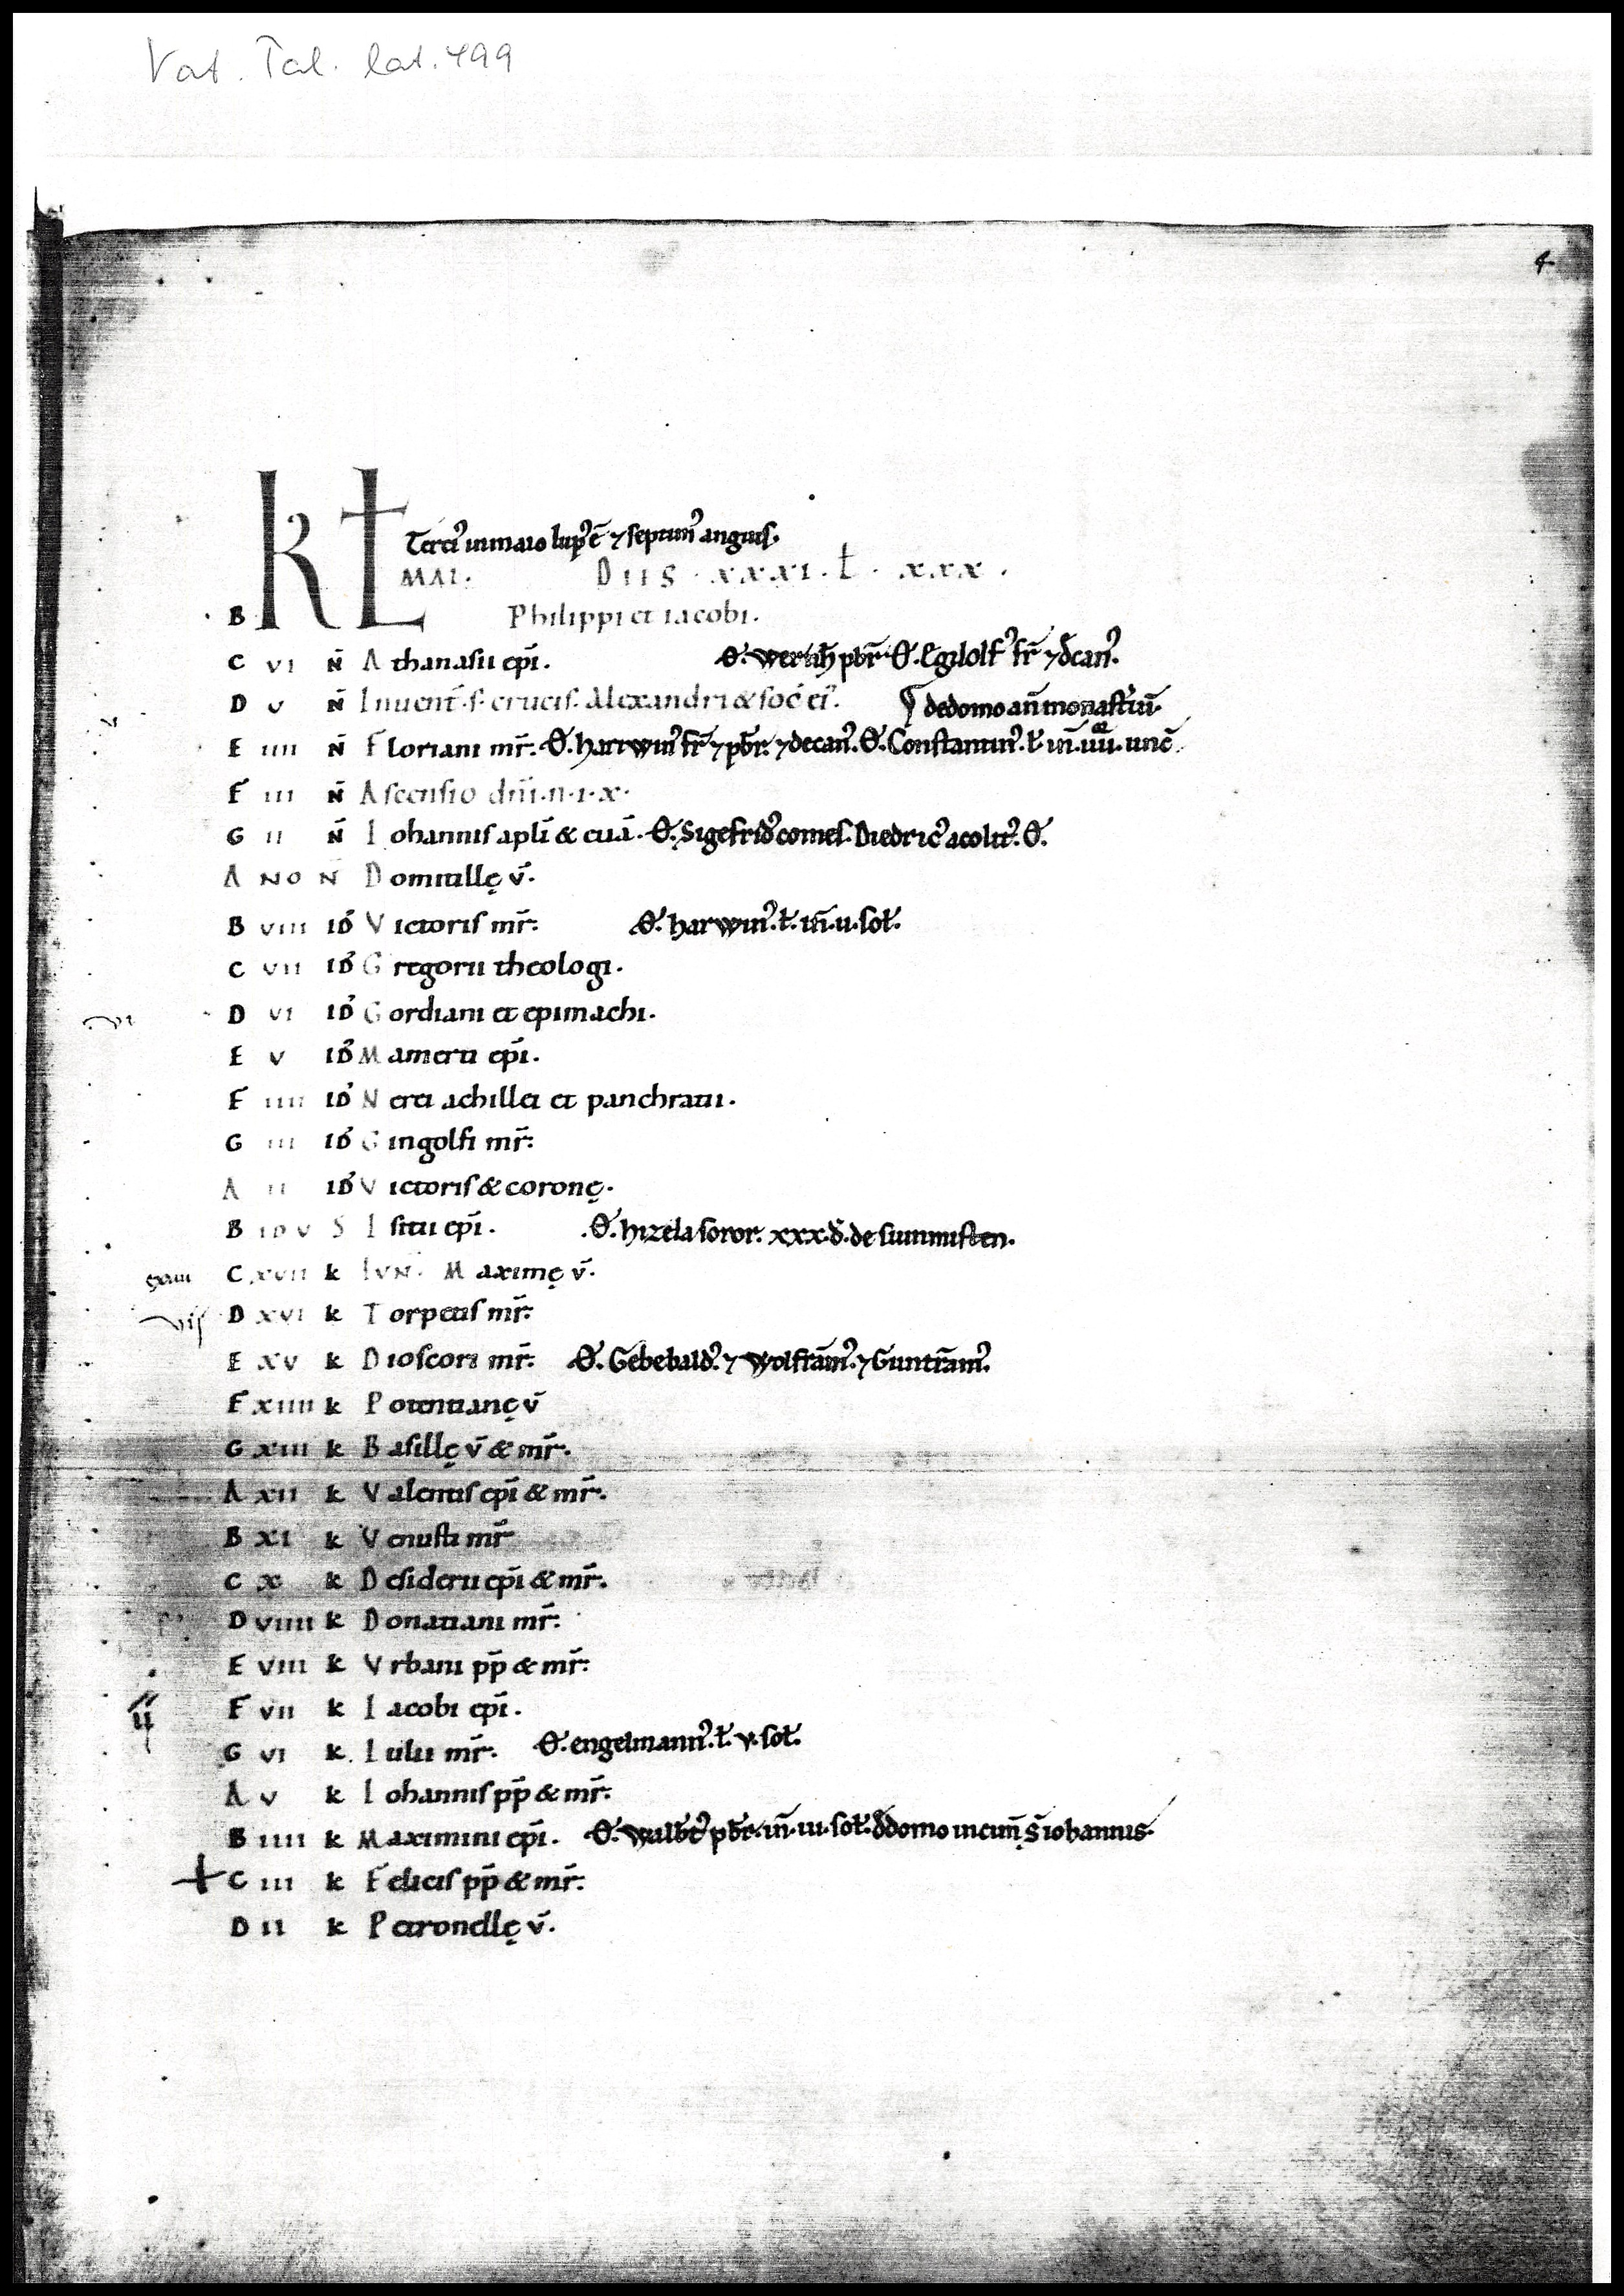 Vat. Pal. lat. 499
4
Terci᷒ in maio lup᷒ ē ⁊ septim᷒ anguis.
KL MAI. DIES · XXXI · L · XXX ·
B Philippi et iacobi.
C VI N̄ Athanasii ep̄i. Ꝋ. pbr̄ Ꝋ. Egilolf᷒ fr̄ ⁊ decan᷒.
D V N̄ Inuent̄. s. crucis. Alexandri & soc̄ ei᷒. de domo an̄ monast̄iū.
E IIII N̄ Floriani mr̄. Ꝋ. harrwin᷒ fr̄ ⁊ pbr̄. ⁊ decan᷒. Ꝋ. Constantin᷒. unc̄.
F III N̄ Ascensio dn̄i. n. i. x.
G II N̄ Iohannis apl̄i & euā. Ꝋ. Sigefrid᷒ comes. Diedric᷒ acolit᷒. Ꝋ.
A NO N̄ Domitillę v̄.
B VIII ID̄ Victoris mr̄. Ꝋ. harwin᷒. ł. in̄. u. soł.
C VII ID̄ Gregorii theologi.
D VI ID̄ Gordiani et epimachi.
E V ID̄ Mamerti ep̄i.
F IIII ID̄ Nerei achillei et panchratii.
G III ID̄ Gingolfi mr̄.
A II ID̄ Victoris & coronę.
B IDVS Isitii ep̄i. Ꝋ. hizela soror. xxx. đ. de summisten.
C XVII k IVN. Maximę v̄.
D XVI k Torpetis mr̄.
E XV k Dioscori mr̄. Ꝋ. Gebebald᷒. ⁊ Wolfrām᷒. ⁊ Guntrām᷒.
F XIIII k Potentianę v̄
G XIII k Basillę v̄ & mr̄.
A XII k Valentis ep̄i & mr̄.
B XI k Venusti mr̄
C X k Desiderii ep̄i & mr̄.
D VIIII k Donatiani mr̄.
E VIII k Vrbani pp̄ & mr̄.
F VII k Iacobi ep̄i.
G VI k. Iulii mr̄. Ꝋ. engelmann᷒. ł. v. soł.
A V k Iohannis pp̄ & mr̄.
B IIII k Maximini ep̄i. Ꝋ. walbt᷒ pbr̄. in̄. iii. soł. đ domo in cim̄ S̄ iohannis.
C III k Felicis pp̄ & mr̄.
D II k Petronellę v̄.